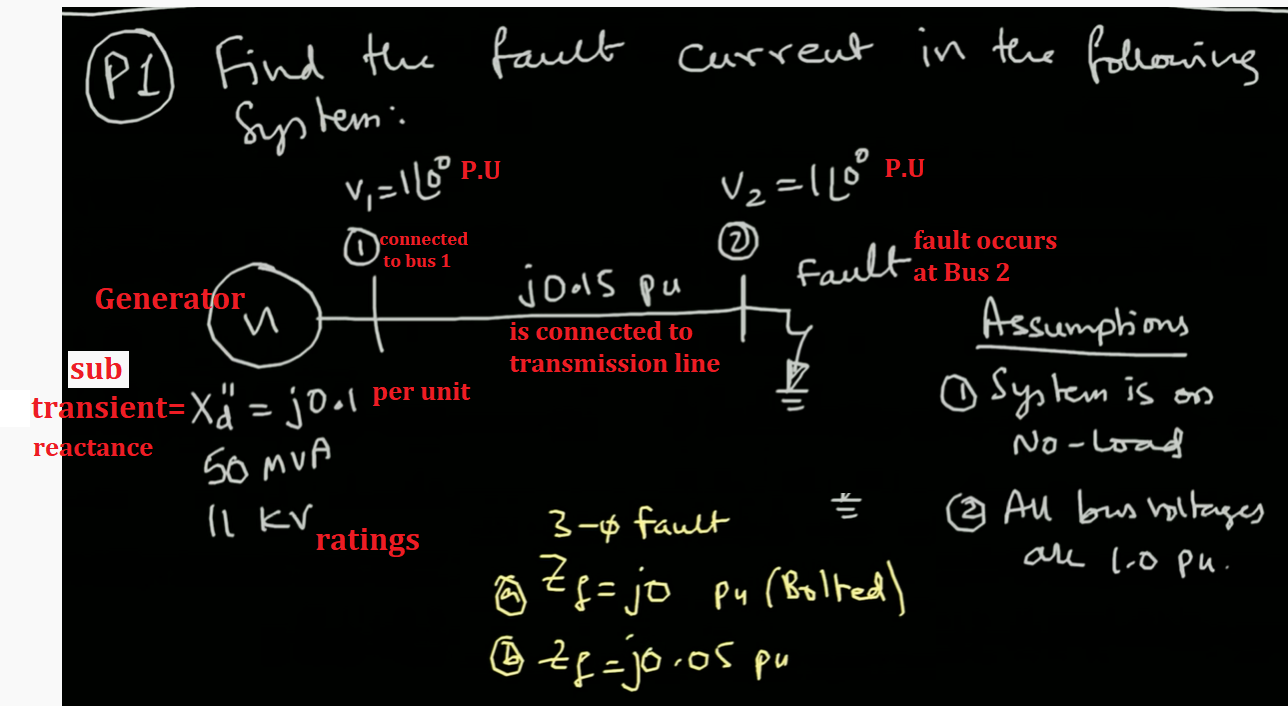 P1 Find the fault current in the following
System:
V₁ = 1∠0° P.U
V₂ = 1∠0° P.U
1 connected
to bus 1
2
Fault fault occurs
at Bus 2
Generator
j0.15 pu
is connected to
transmission line
sub
transient= Xd" = j0.1 per unit
reactance
50 MVA
11 KV ratings
Assumptions
① System is on
No-Load
② All bus voltages
are 1.0 pu.
3-φ fault
ⓐ Zf = j0 pu (Bolted)
ⓑ Zf = j0.05 pu